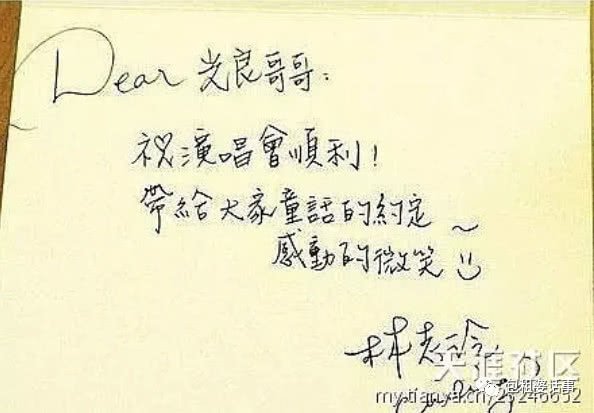 Dear 光良哥哥:
祝演唱會順利!
帶給大家童話的約定~
感動的微笑
林志玲
天涯社区
my.tianya.cn/